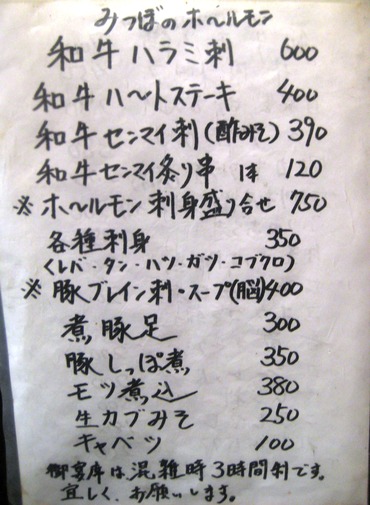 みつぼのホールモン
和牛ハラミ刺 600
和牛ハートステーキ 400
和牛センマイ刺(酢みそ) 390
和牛センマイ炙り串 1本 120
※ ホールモン刺身盛り合せ 750
各種刺身 350
(レバ・タン・ハツ・ガツ・コブクロ)
※ 豚ブレイン刺・スープ(脳) 400
煮豚足 300
豚しっぽ煮 350
モツ煮込 380
生カブみそ 250
キャベツ 100
御宴席は、混雑時3時間制です。
宜しく、お願いします。